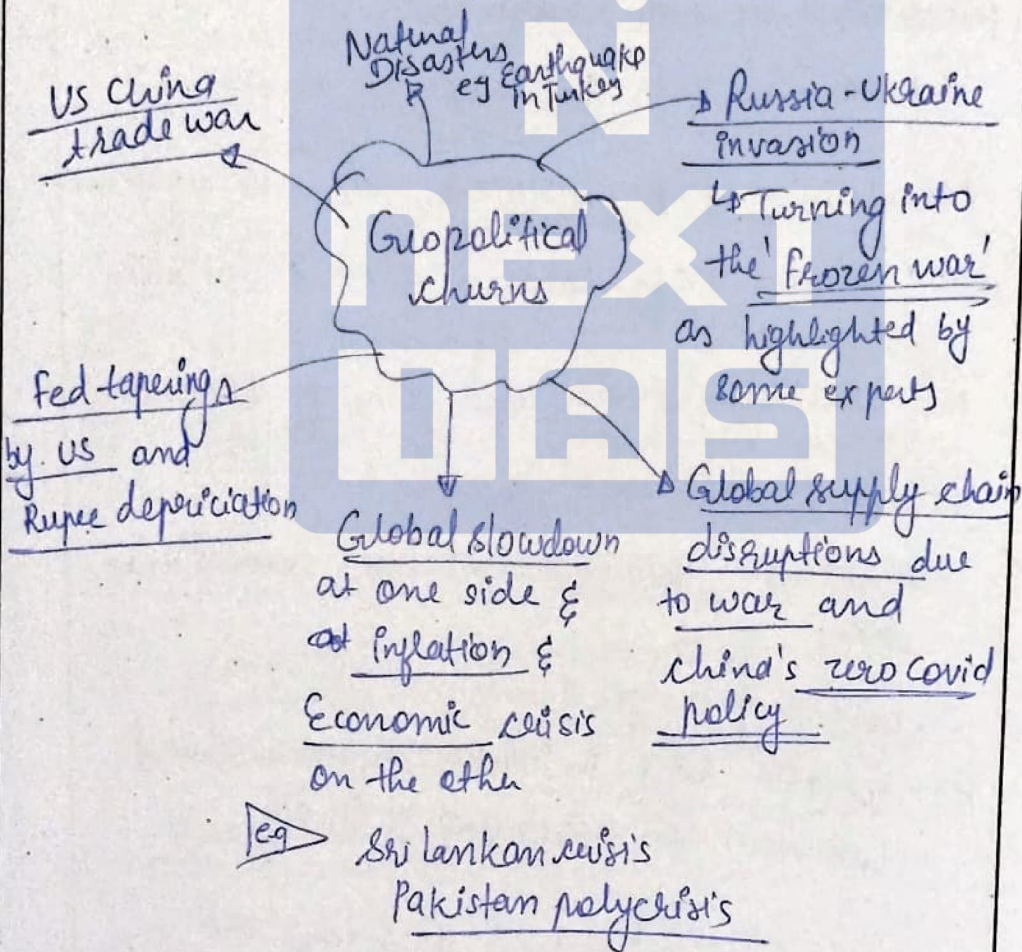 Natural
Disasters
eg Earthquake
in Turkey
US China
trade war
Russia-Ukraine
invasion
↳ Turning into
the 'frozen war'
as highlighted by
some experts
Geopolitical
churns
Fed tapering
by US and
Rupee depriciation
Global slowdown
at one side &
at inflation &
Economic crisis
on the other
Global supply chain
disruptions due
to war and
China's zero covid
policy
eg
Sri lankan crisis
Pakistan polycrisis
N
NEXT
IAS